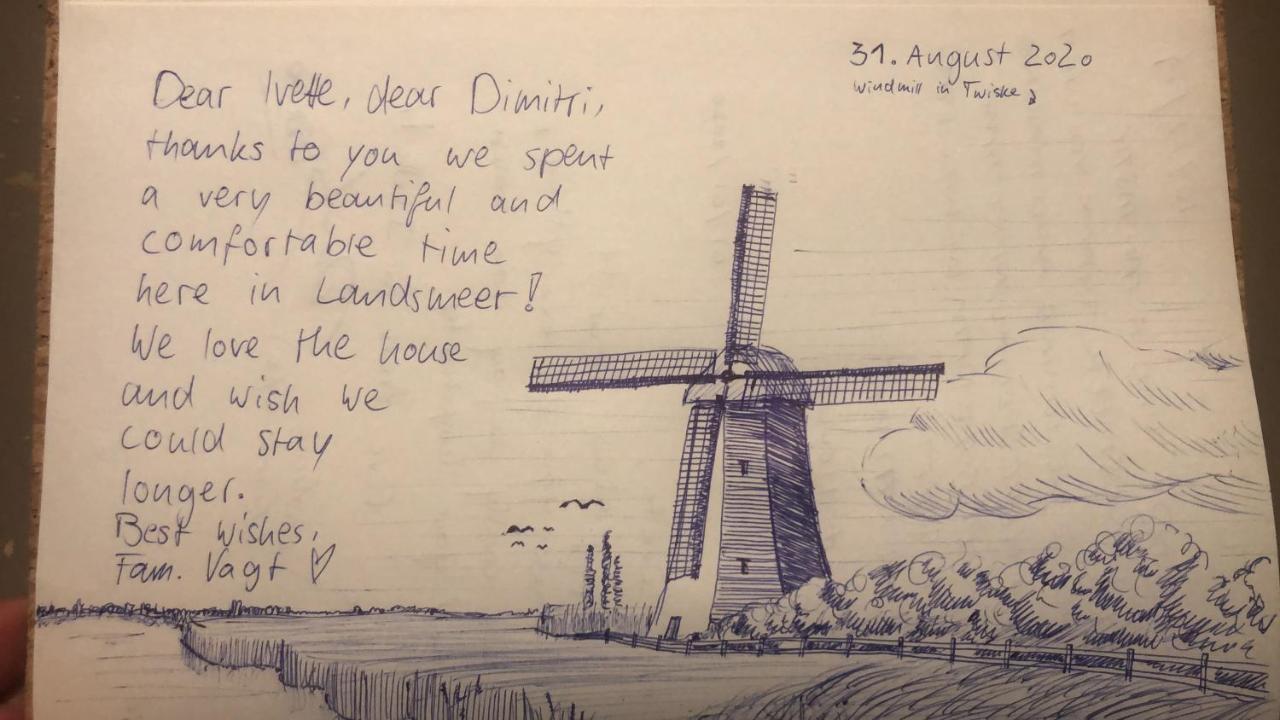 31. August 2020
windmill in Twiske
Dear Ivette, dear Dimitri,
thanks to you we spent
a very beautiful and
comfortable time
here in Landsmeer!
We love the house
and wish we
could stay
longer.
Best wishes,
Fam. Vagt ♡